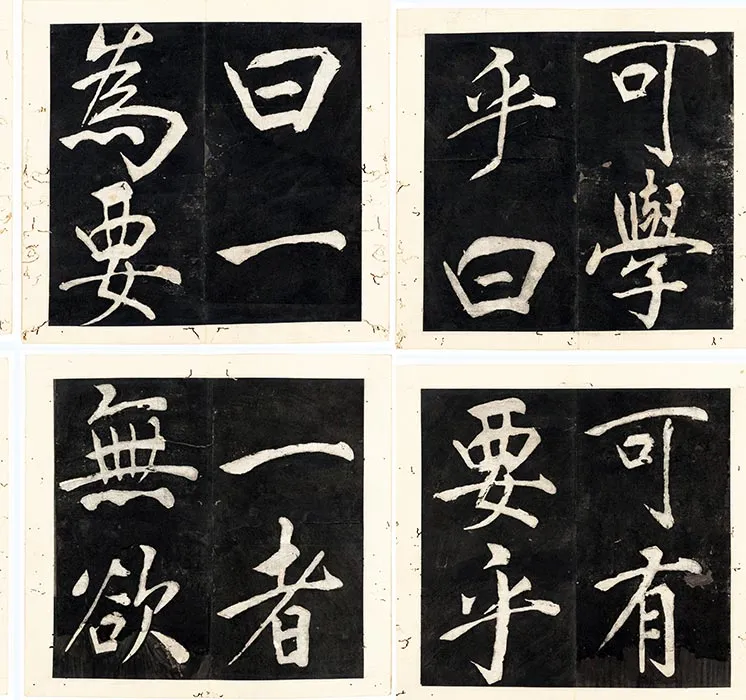 可學
乎曰
可有
要乎
曰一
為要
一者
無欲